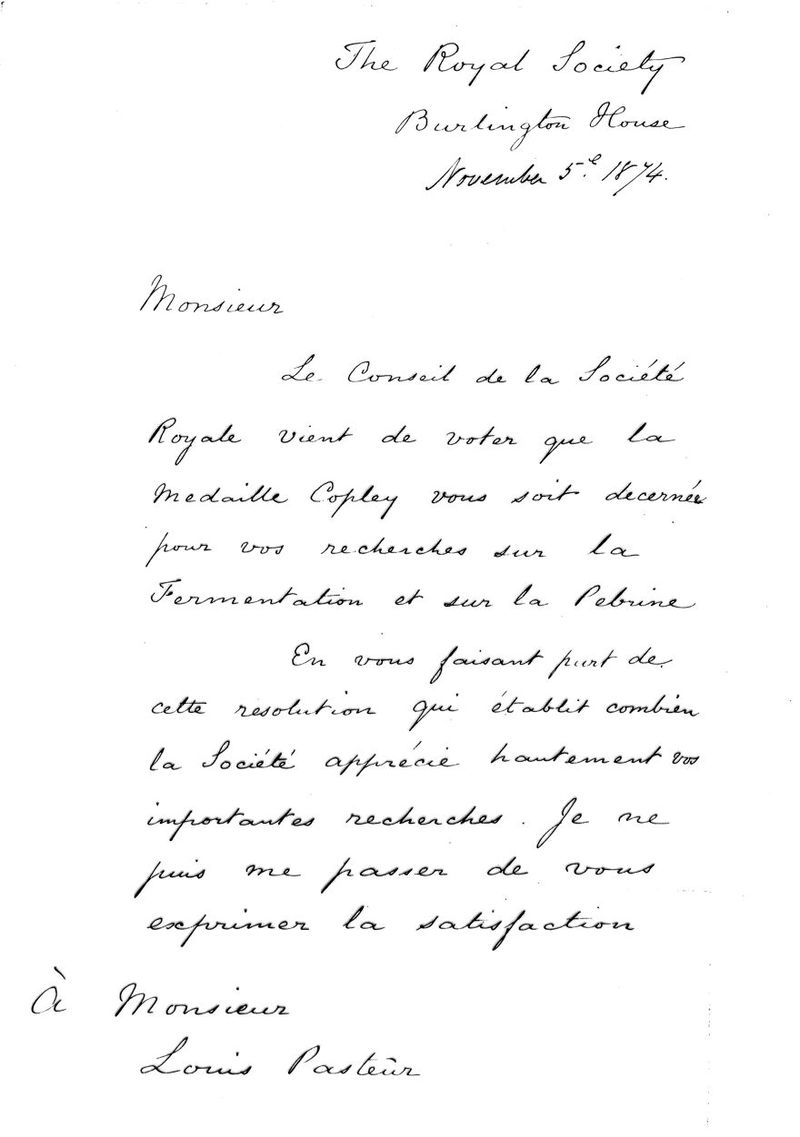 The Royal Society
Burlington House
November 5.e 1874.
Monsieur
Le Conseil de la Société
Royale vient de voter que la
Medaille Copley vous soit decernée
pour vos recherches sur la
Fermentation et sur la Pebrine
En vous faisant part de
cette resolution qui établit combien
la Société apprécie hautement vos
importantes recherches. Je ne
puis me passer de vous
exprimer la satisfaction
À Monsieur
Louis Pasteur